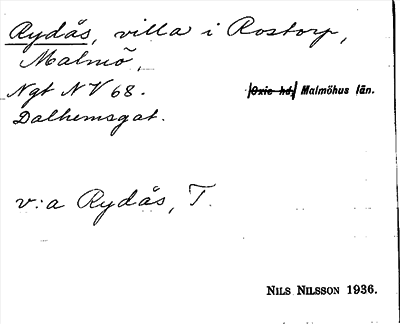 Rydås, villa i Rostorp,
Malmö,
Ngt NV 68.
Oxie hd, Malmöhus län.
Dalhemsgat.
v:a Rydås, T.
NILS NILSSON 1936.